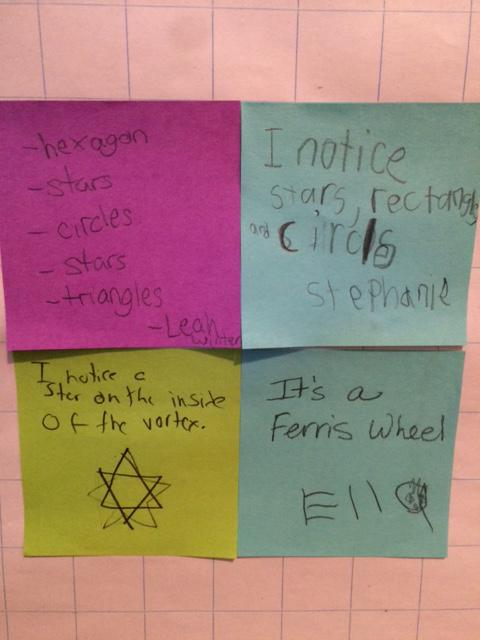 -hexagon
-stars
- circles
- stars
-triangles
-Leah
winter
I notice
stars, rectangls
and circls
stephanie
I notice a
Star on the inside
Of the vortex.
It's a
Ferris Wheel
Ella